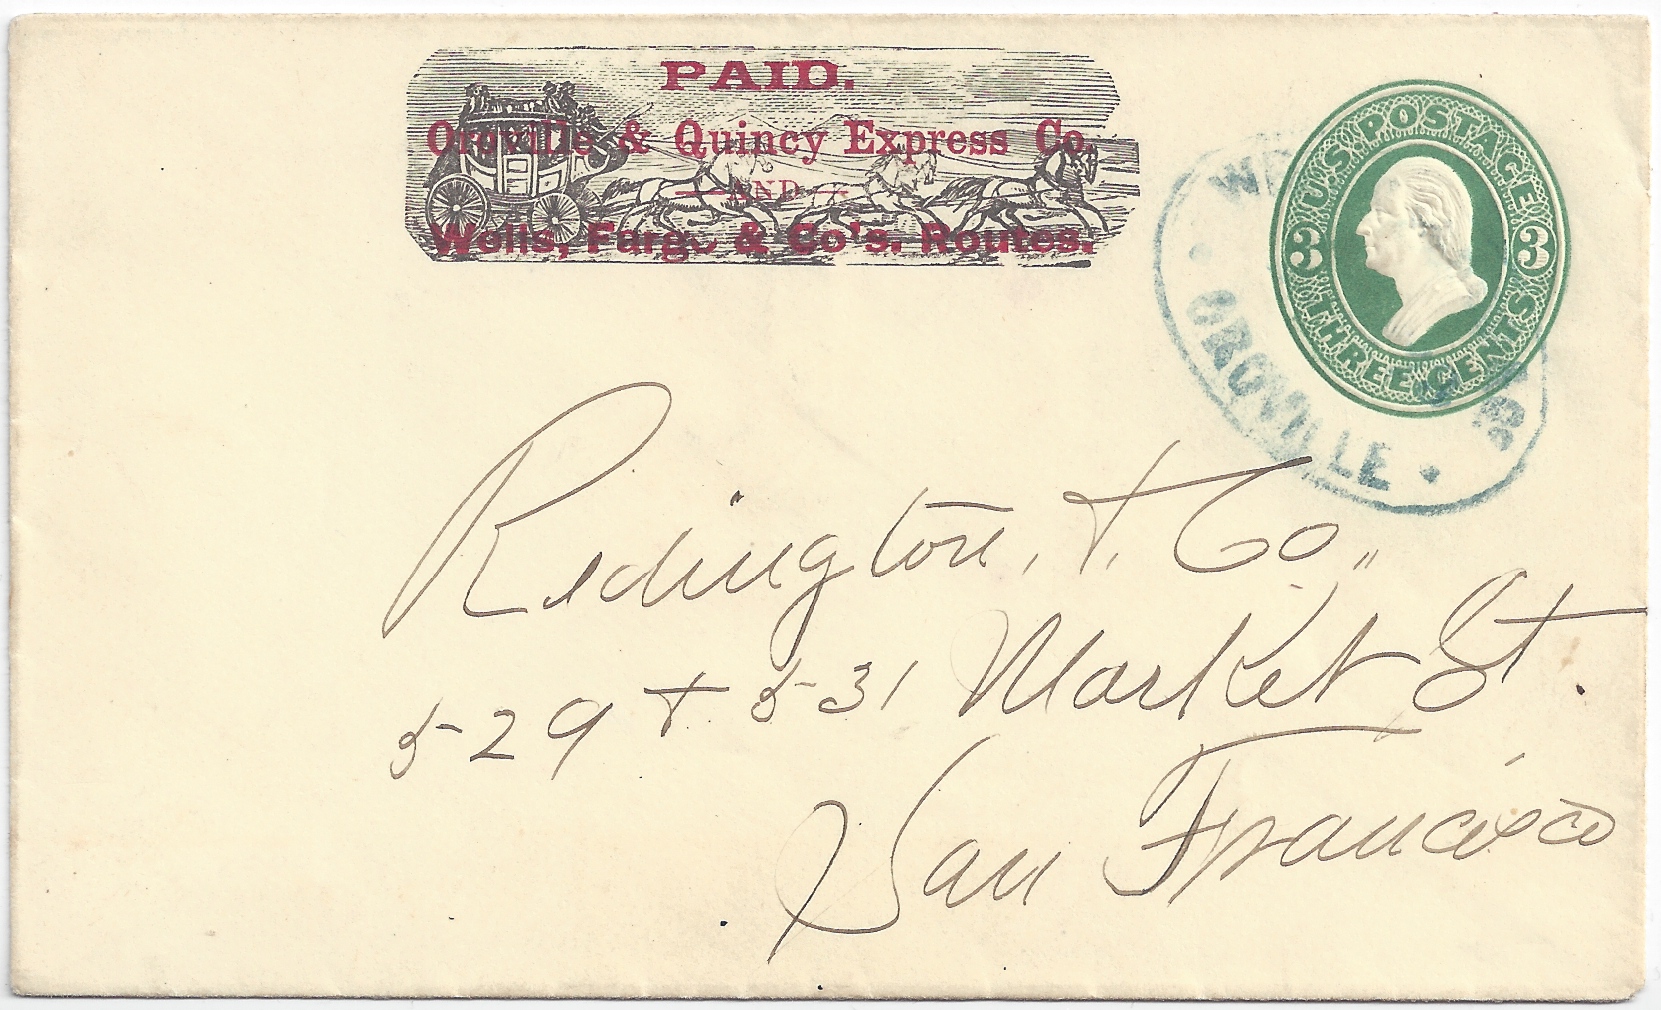 PAID.
Oroville & Quincy Express Co.
AND
Wells, Fargo & Co's. Routes.
U.S POSTAGE
3 3
THREE CENTS
OROVILLE
Redington, & Co,,
529 & 531 Market St.
San Francisco